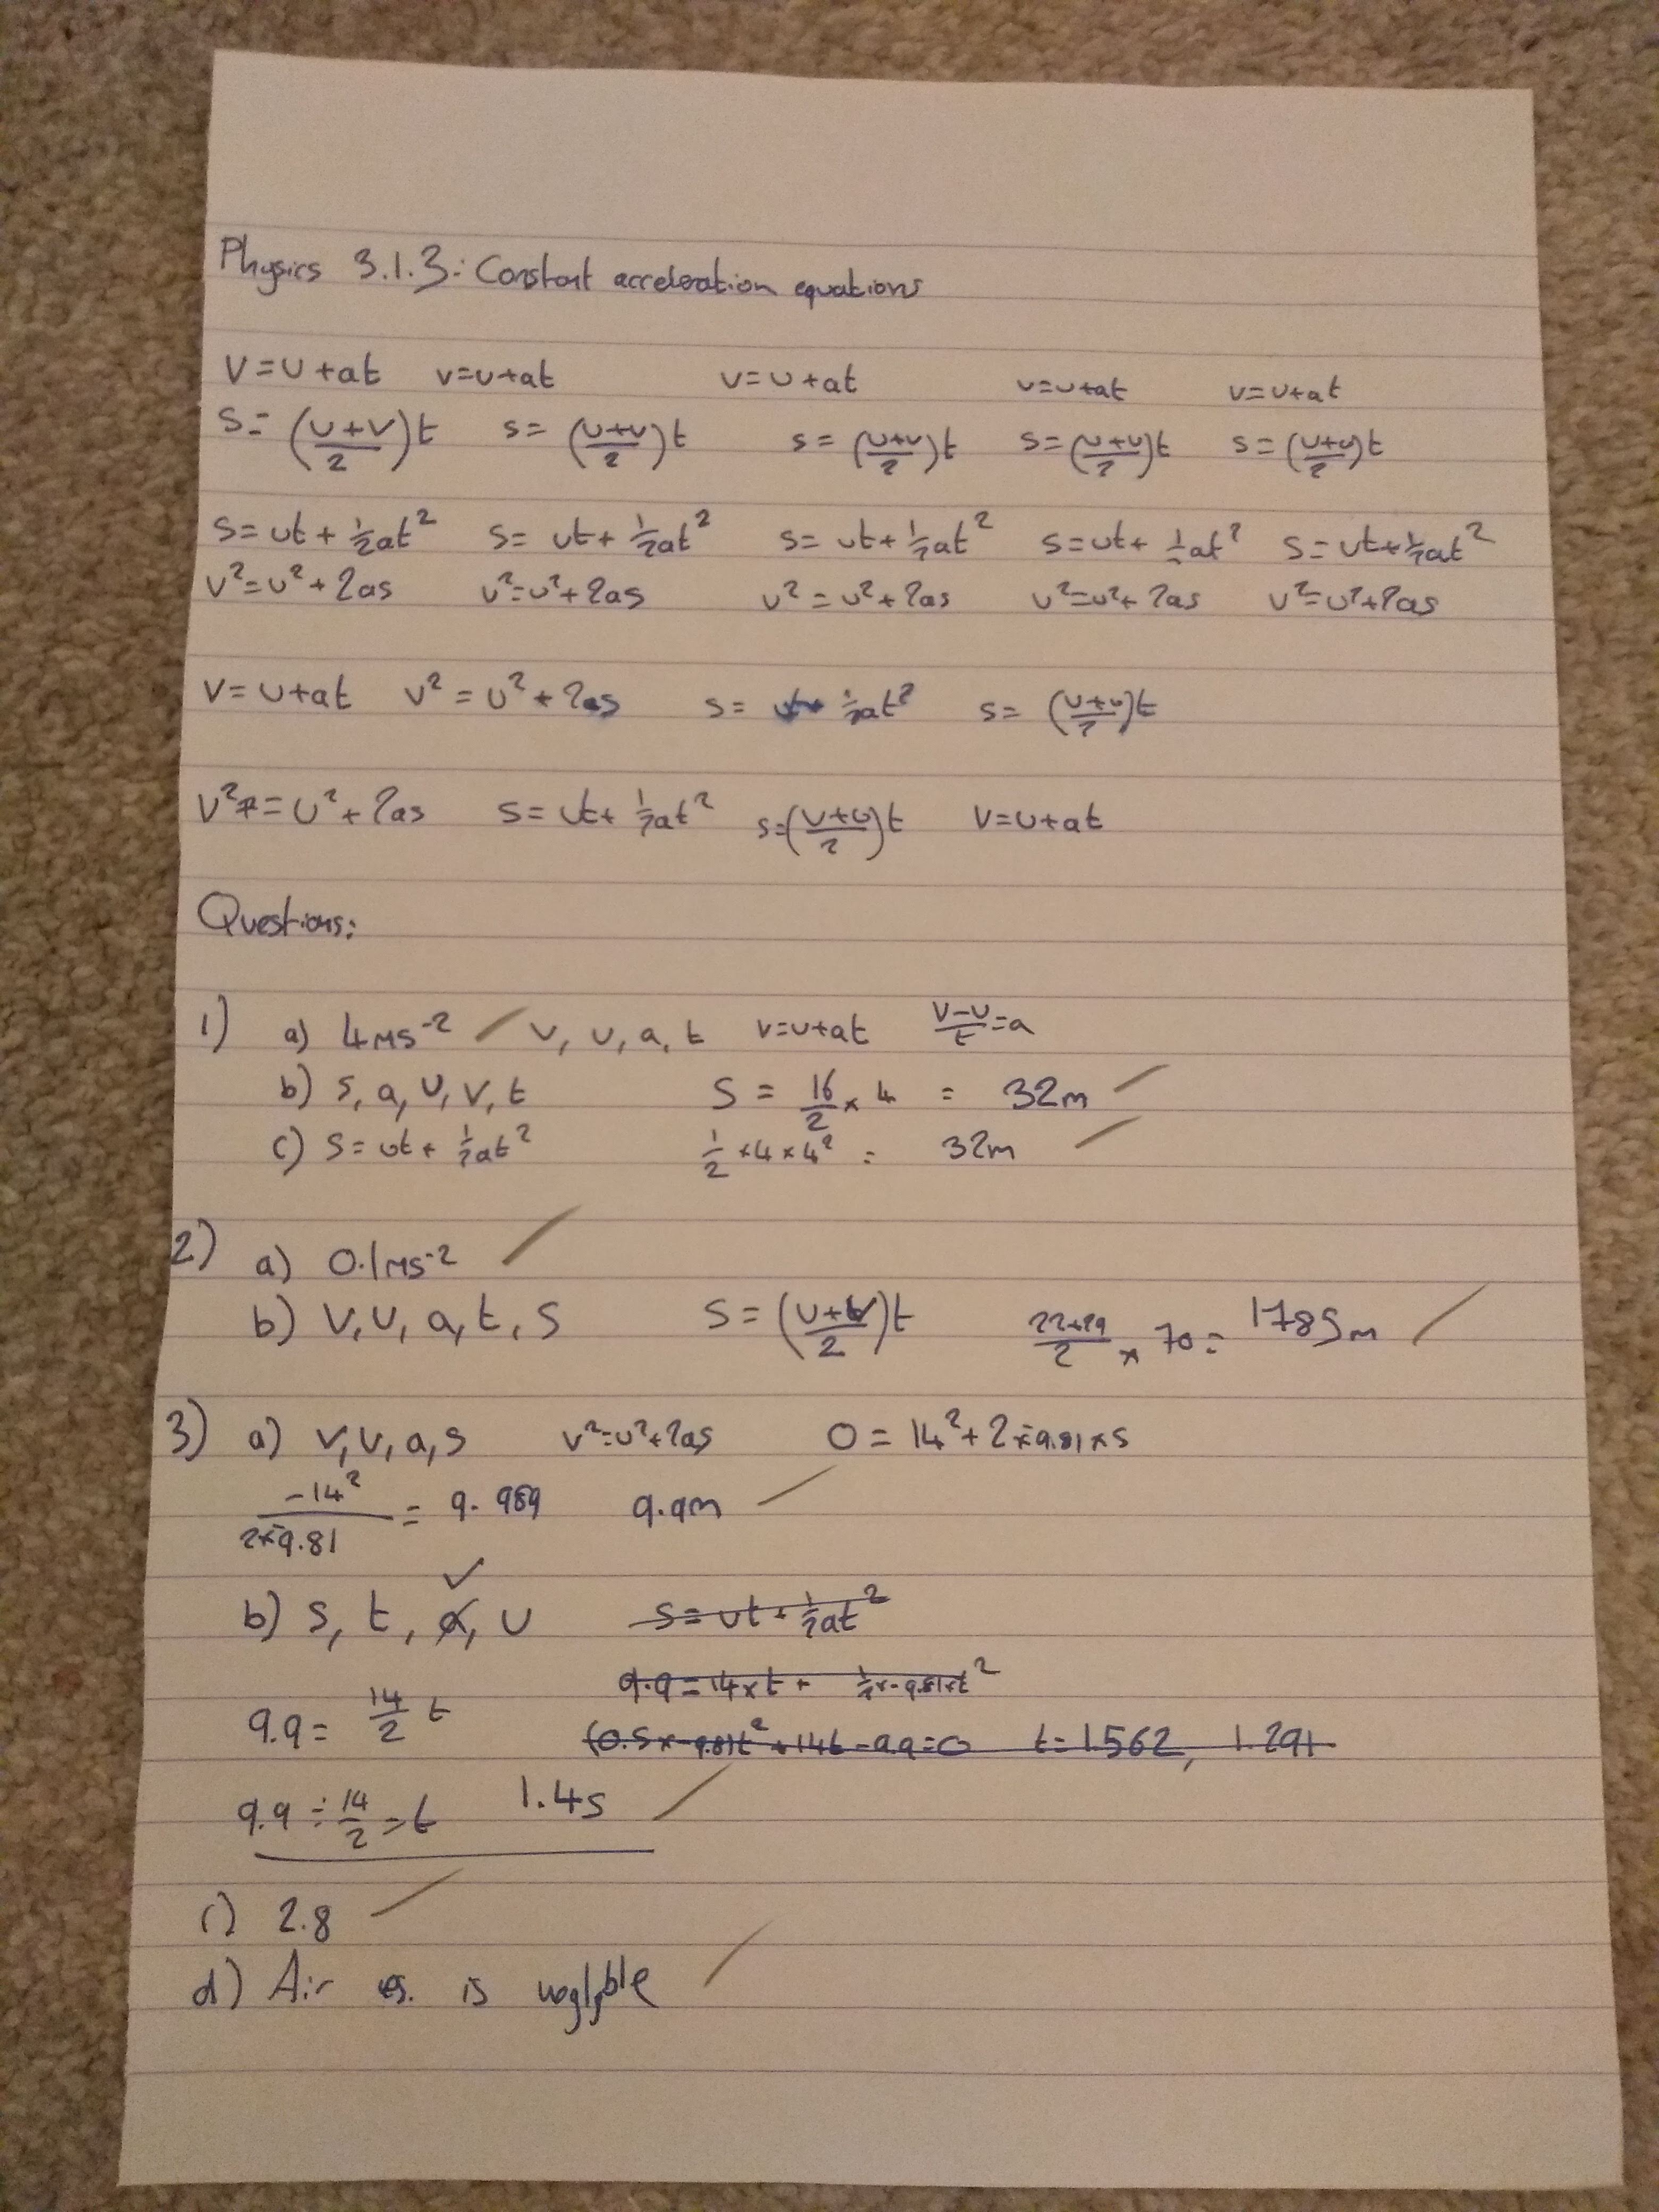 Physics 3.1.3: Constant acceleration equations
V=U+at v=u+at v=u+at v=u+at v=u+at
S=((U+V)/2)t s=((u+v)/2)t s=((u+v)/2)t s=((u+v)/2)t s=((u+v)/2)t
S=ut+½at² s=ut+½at² s=ut+½at² s=ut+½at² s=ut+½at²
v²=u²+2as v²=u²+2as v²=u²+2as v²=u²+2as v²=u²+2as
V=U+at v²=u²+2as s=ut+½at² s=((u+v)/2)t
V²=U²+2as S=ut+½at² s=((u+v)/2)t V=u+at
Questions:
1) a) 4ms⁻² v, u, a, t v=u+at (v-u)/t=a
b) s, a, u, v, t S = 16/2 × 4 = 32m
c) S=ut+½at² ½×4×4² = 32m
2) a) 0.1ms⁻²
b) V, U, a, t, s S=((u+v)/2)t (22+29)/2 × 70 = 1785m
3) a) v, u, a, s v²=u²+2as 0=14²+2×-9.81×s
-14²/(2×-9.81) = 9.989 9.9m
b) s, t, a, u s=ut+½at²
9.9=14×t+½×-9.81×t²
9.9=14/2 t (0.5×-9.81)t²+14t-9.9=0 t=1.562, 1.291
9.9÷14/2=t 1.4s
c) 2.8
d) Air res. is neglgble